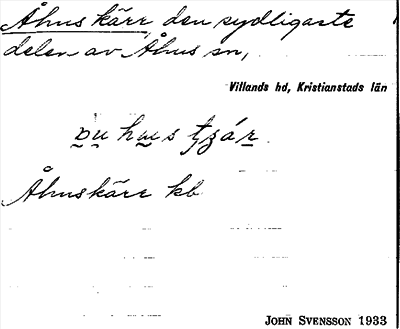 Åhus kärr, den sydligaste
delen av Åhus sn,
Villands hd, Kristianstads län
Åhuskärr kb
JOHN SVENSSON 1933